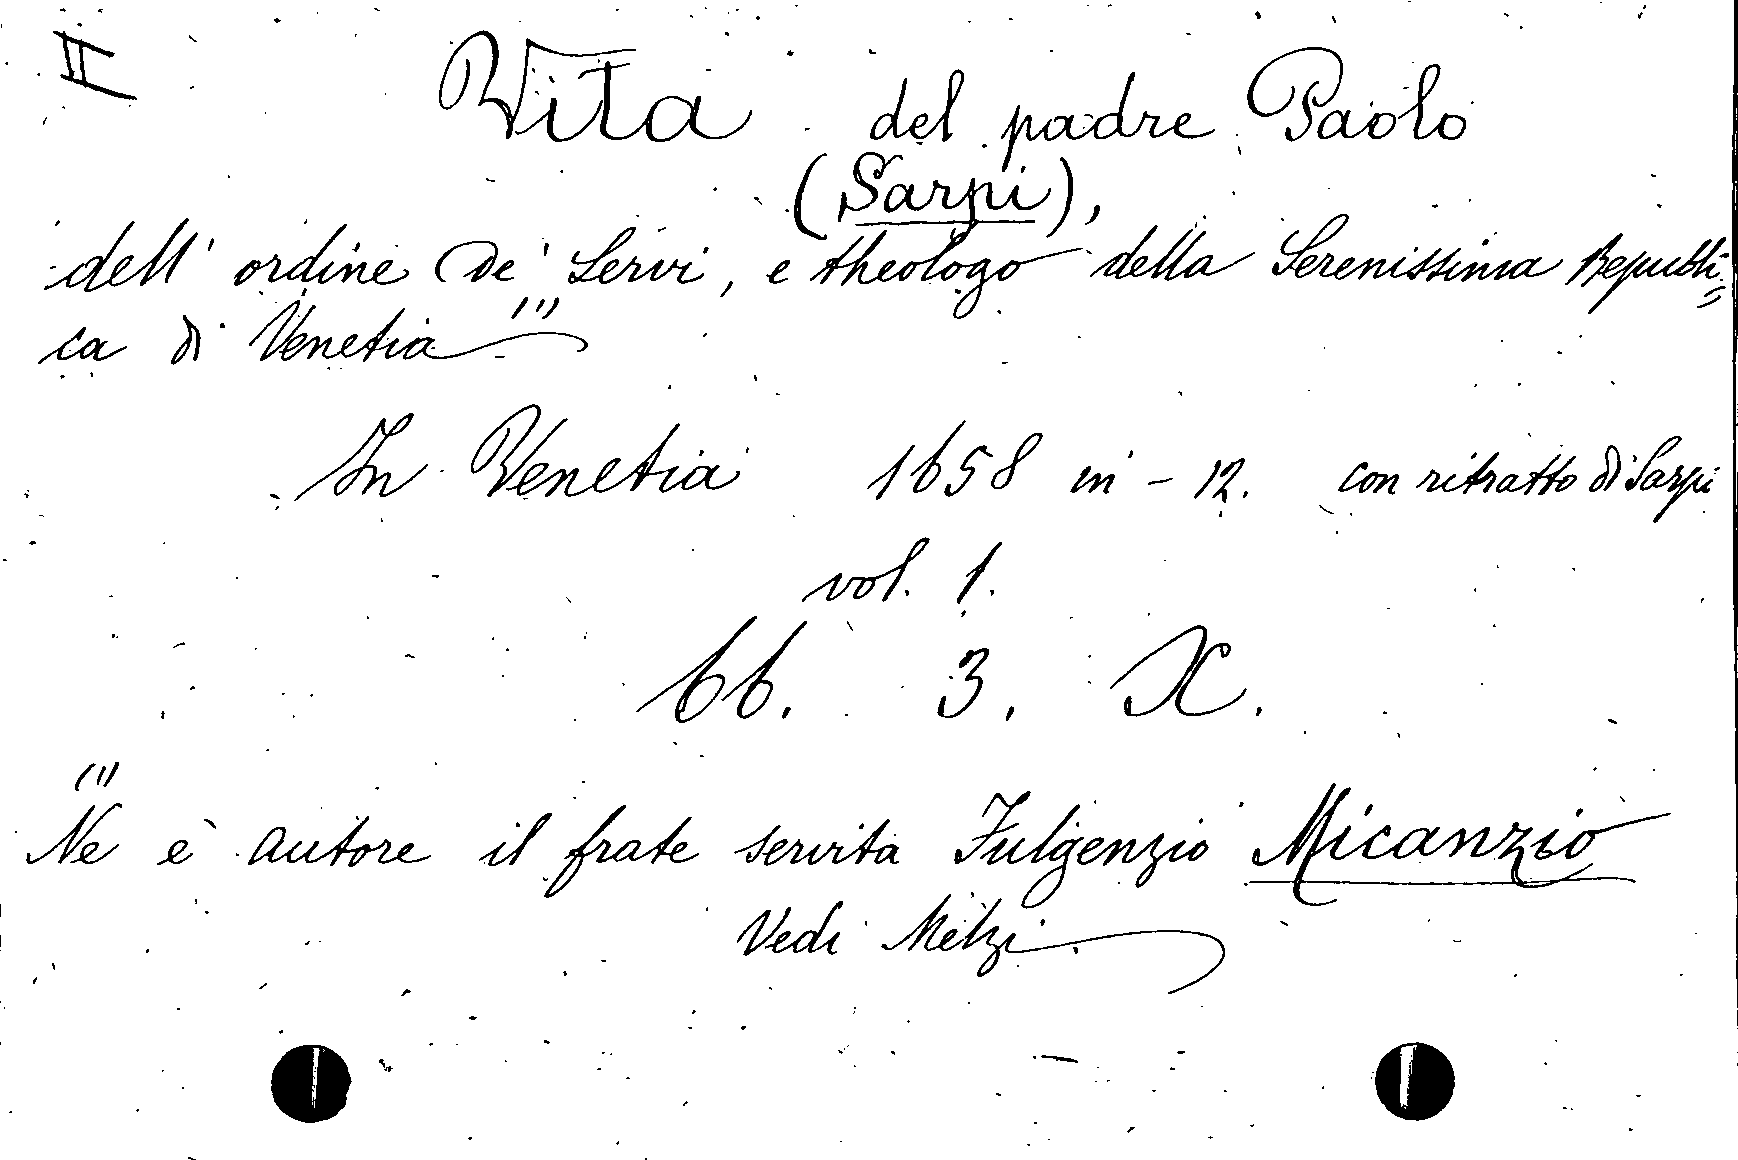 II
Vita del padre Paolo
(Sarpi),
dell' ordine de' Servi, e theologo della Serenissima Republi=
ca di Venetia (1)
In Venetia 1658 in-12. con ritratto di Sarpi
vol. 1.
66. 3. X.
(1)
Ne è autore il frate servita Fulgenzio Micanzio
Vedi Melzi